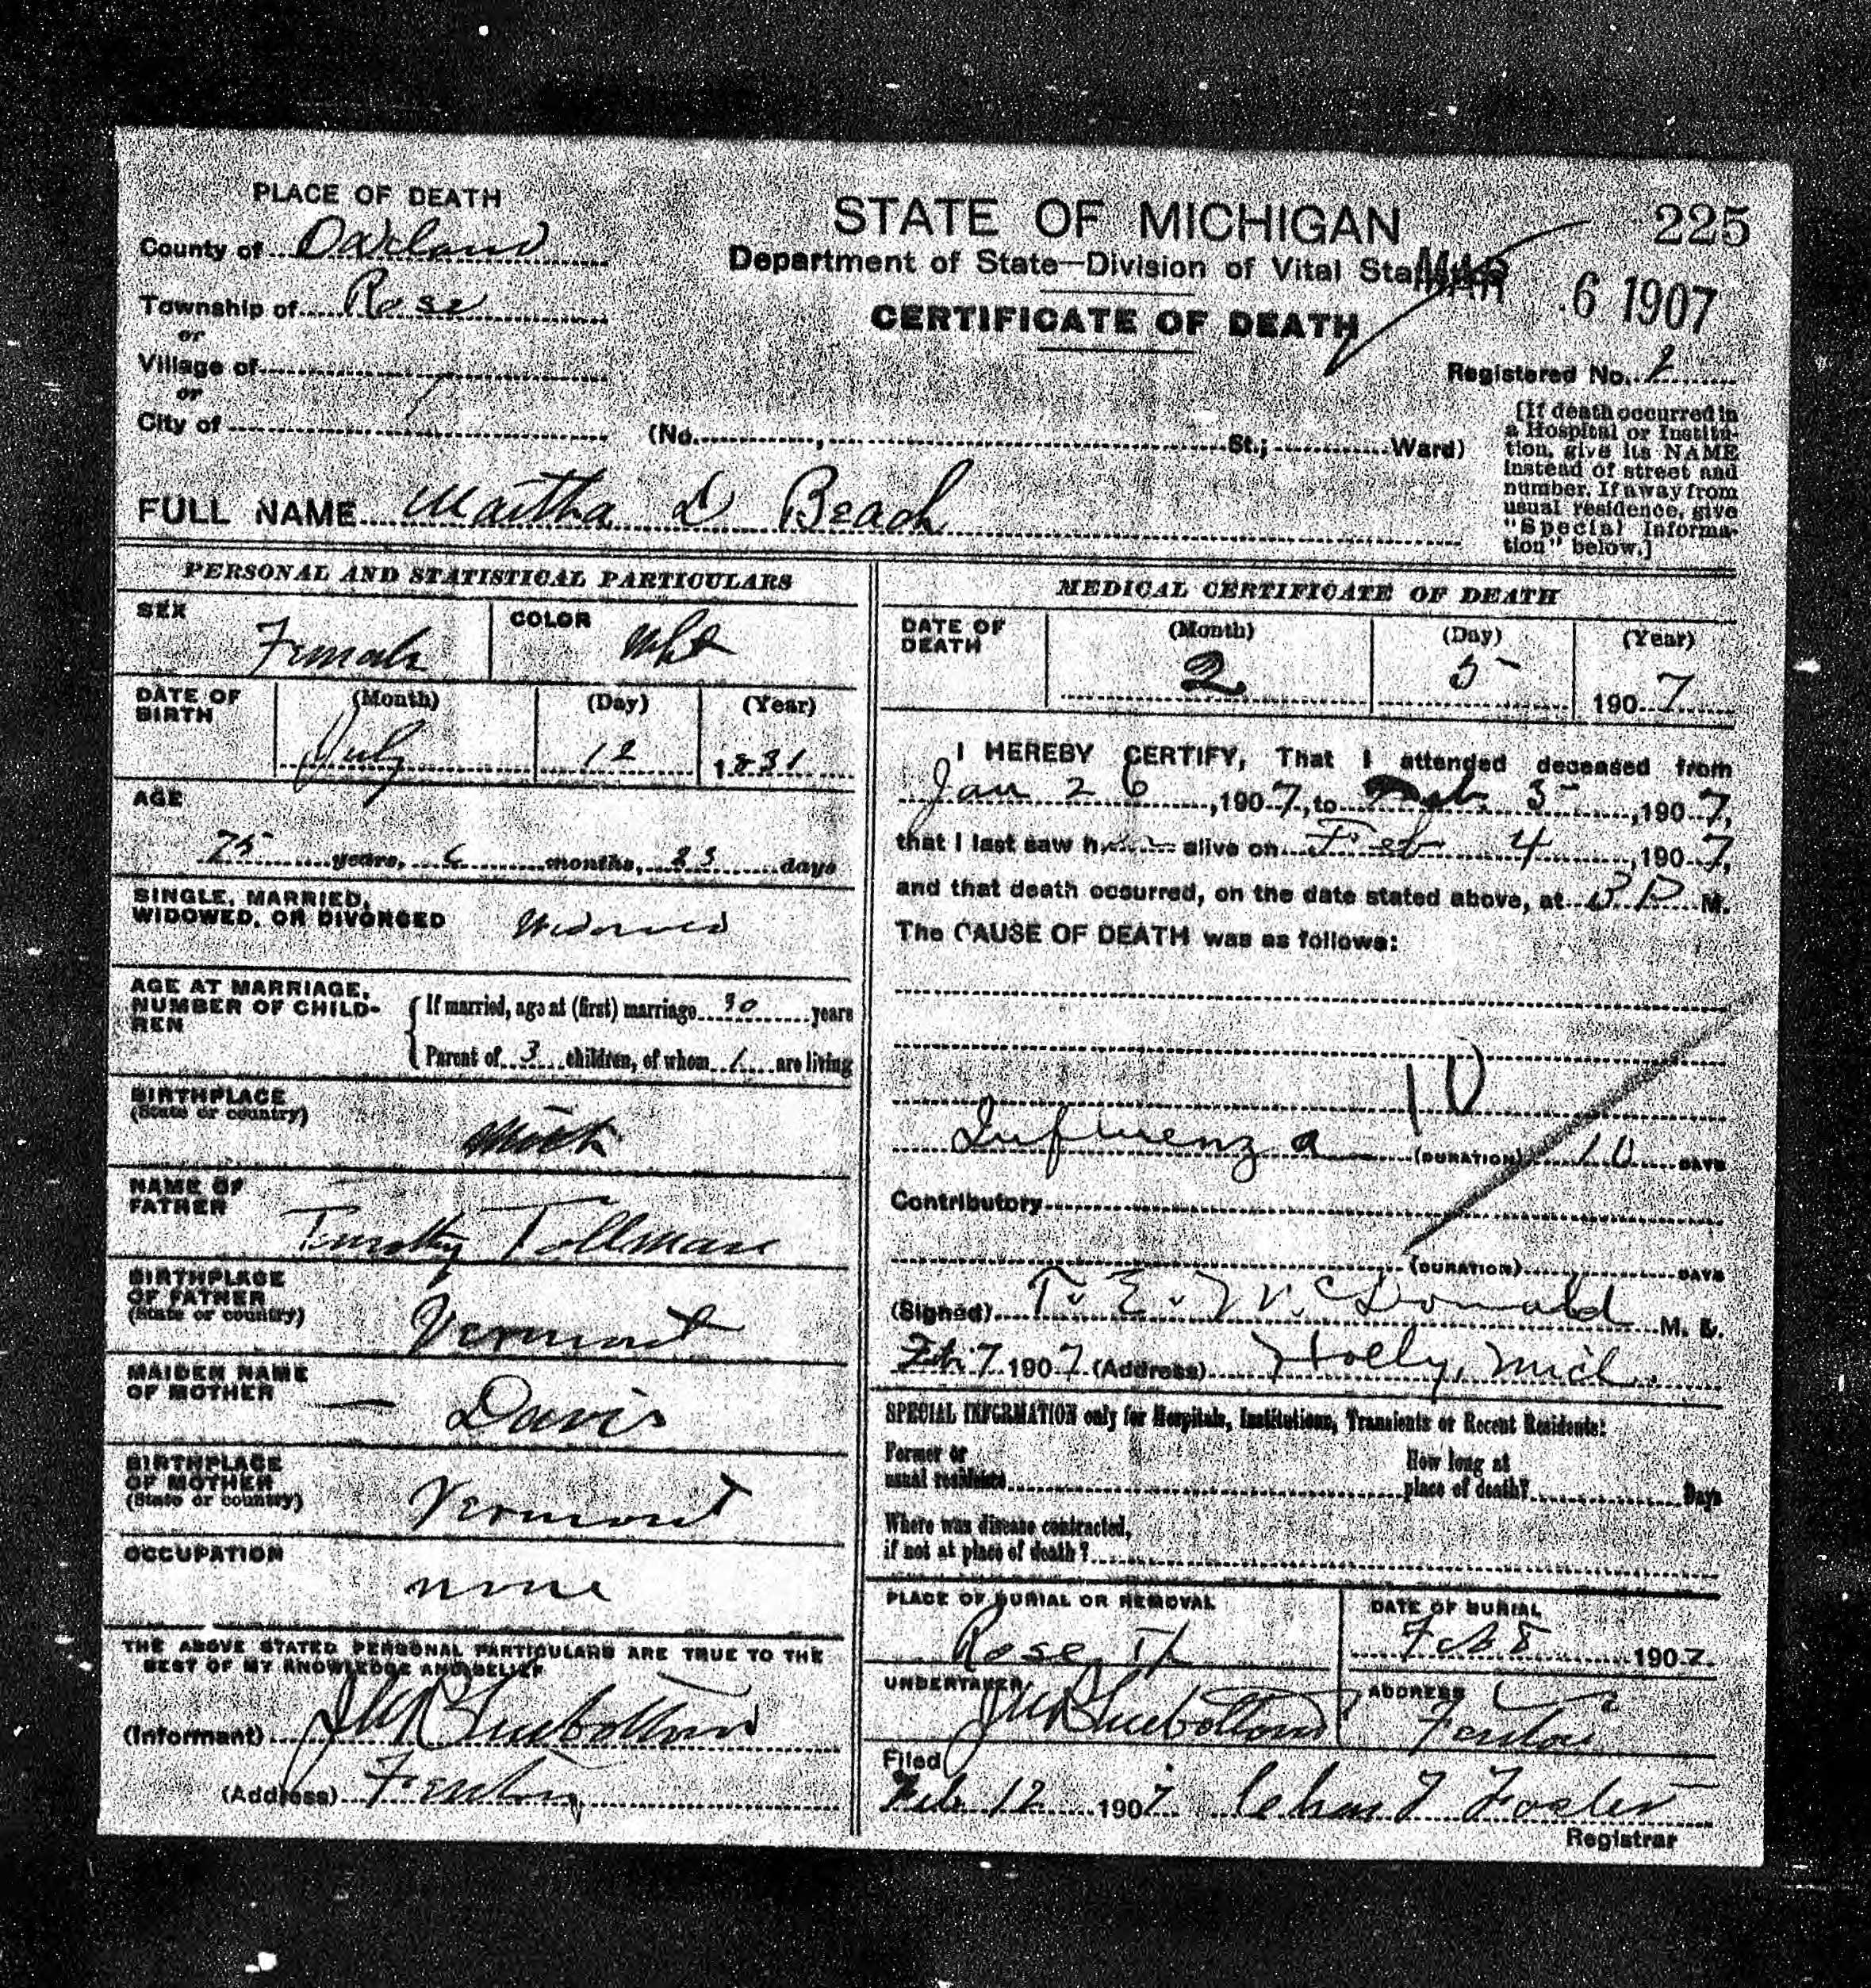 PLACE OF DEATH
County of Oakland
Township of Rose
or
Village of
or
City of
STATE OF MICHIGAN
225
Department of State—Division of Vital Statistics
MAR 6 1907
CERTIFICATE OF DEATH
Registered No. 2
(No. , St.; Ward)
[If death occurred in
a Hospital or Institu-
tion, give its NAME
instead of street and
number. If away from
usual residence, give
"Special Informa-
tion" below.]
FULL NAME Martha D Beach
PERSONAL AND STATISTICAL PARTICULARS
SEX Female
COLOR Wht
DATE OF BIRTH
(Month) July
(Day) 12
(Year) 1831
AGE
75 years, 6 months, 23 days
SINGLE, MARRIED,
WIDOWED, OR DIVORCED Widowed
AGE AT MARRIAGE,
NUMBER OF CHILD-
REN
If married, age at (first) marriage 30 years
Parent of 3 children, of whom 1 are living
BIRTHPLACE
(State or country)
Mich
NAME OF
FATHER
Timothy Tollman
BIRTHPLACE
OF FATHER
(State or country)
Vermont
MAIDEN NAME
OF MOTHER
— Davis
BIRTHPLACE
OF MOTHER
(State or country)
Vermont
OCCUPATION
none
THE ABOVE STATED PERSONAL PARTICULARS ARE TRUE TO THE
BEST OF MY KNOWLEDGE AND BELIEF
(Informant)
(Address) Fenton
MEDICAL CERTIFICATE OF DEATH
DATE OF
DEATH
(Month) 2
(Day) 5
(Year) 1907
I HEREBY CERTIFY, That I attended deceased from
Jan 26, 1907, to Feb. 5, 1907,
that I last saw her alive on Feb 4, 1907,
and that death occurred, on the date stated above, at 3 P M.
The CAUSE OF DEATH was as follows:
10
Influenza (DURATION) 10 DAYS
Contributory
(DURATION) DAYS
(Signed) T. E. McDonald M. D.
Feb 7 1907 (Address) Holly, Mich.
SPECIAL INFORMATION only for Hospitals, Institutions, Transients or Recent Residents:
Former or
usual residence
How long at
place of death? Days
Where was disease contracted,
if not at place of death?
PLACE OF BURIAL OR REMOVAL
Rose
DATE OF BURIAL
Feb 8 1907
UNDERTAKER
ADDRESS
Fenton
Filed
Feb 12 1907 Chas Foster
Registrar